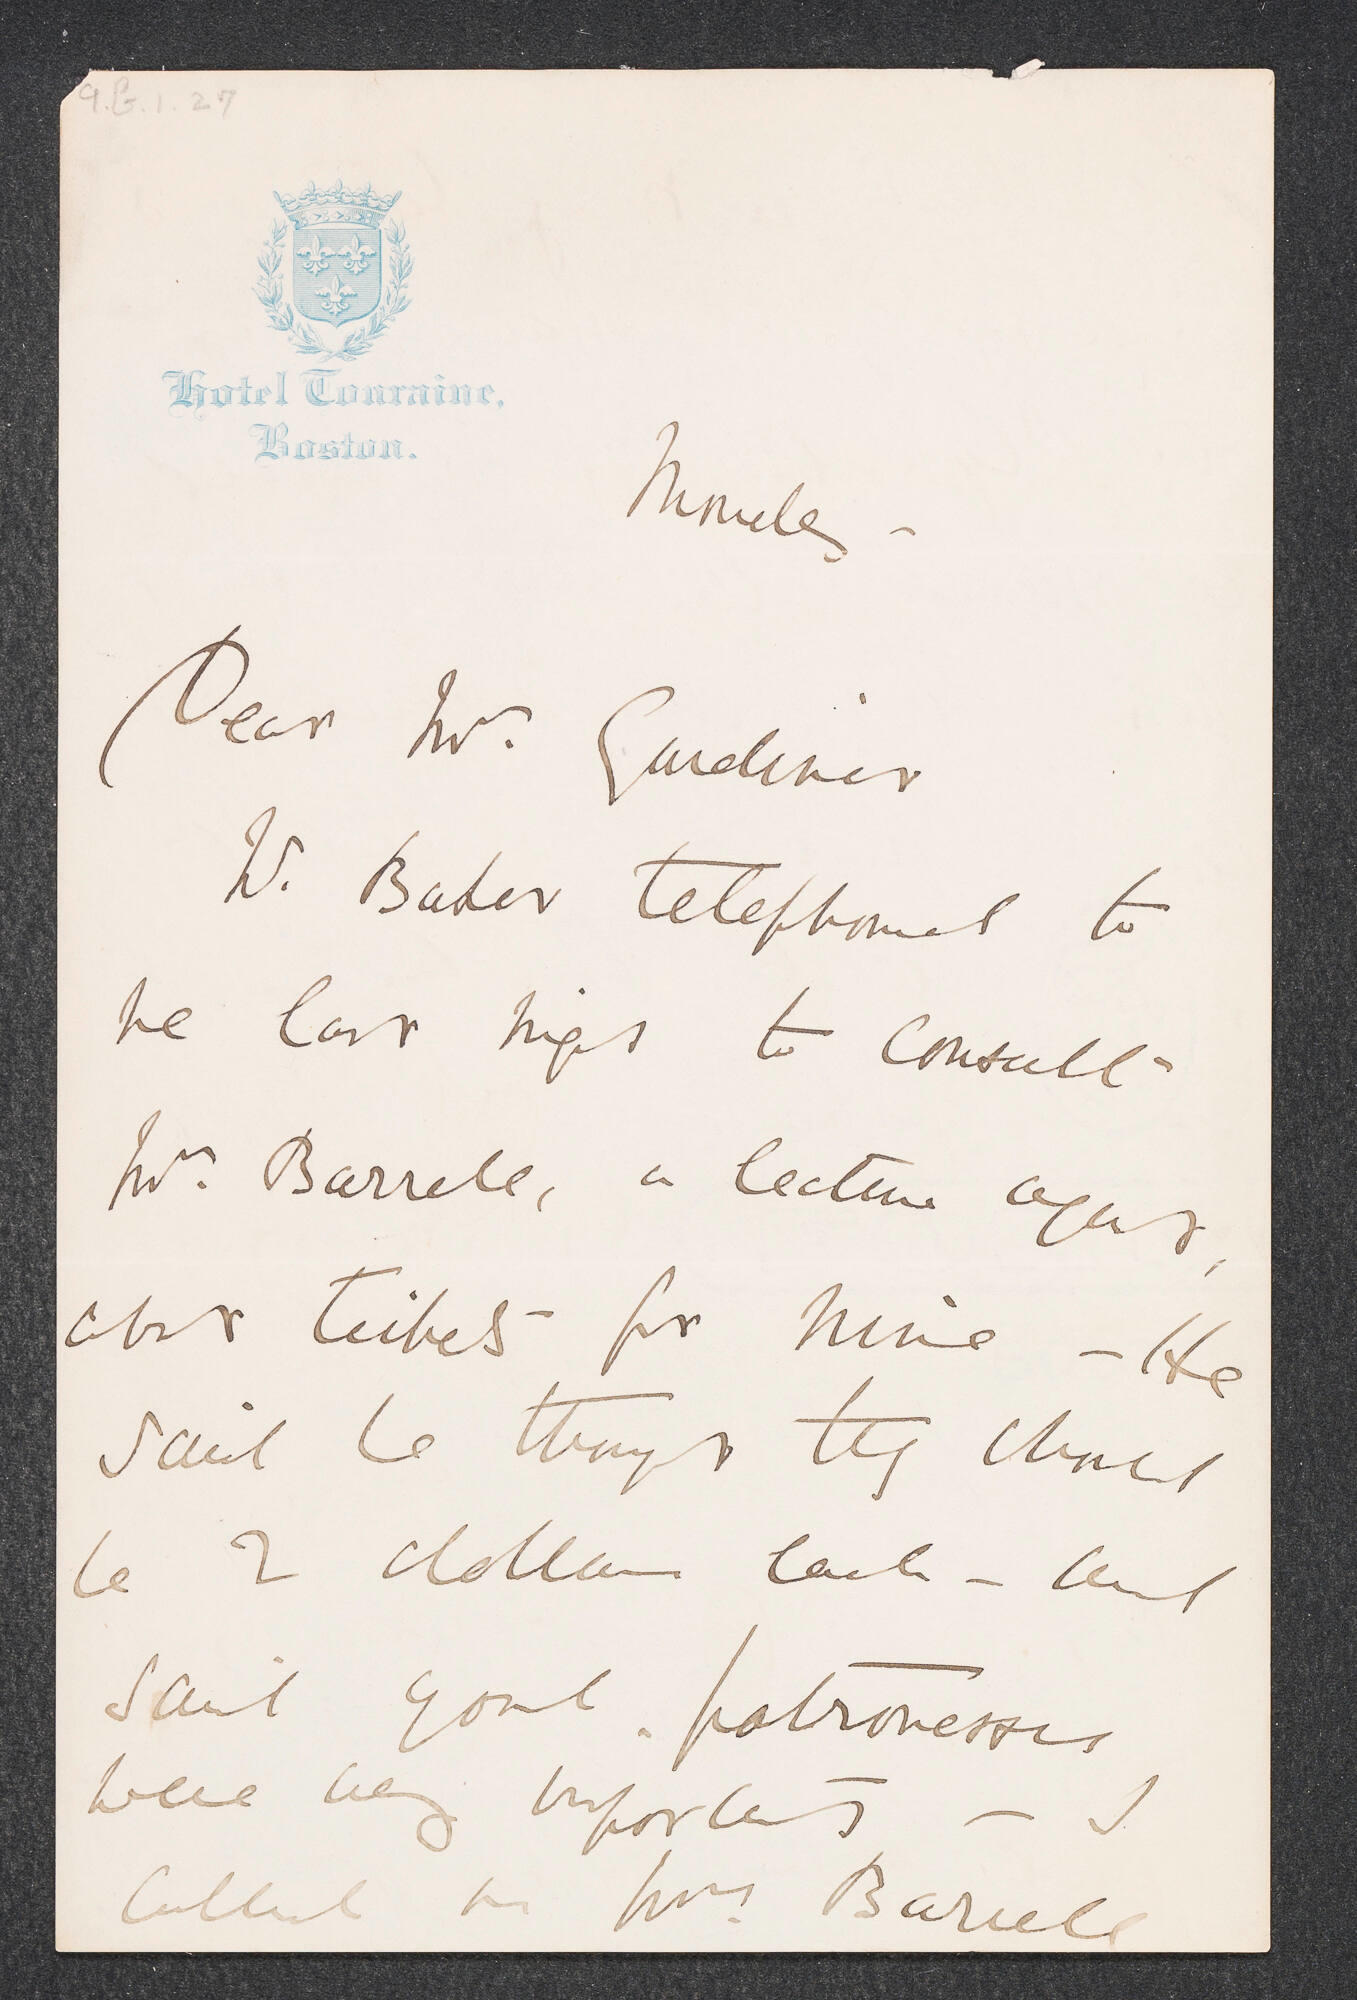 9.G.1.27
Hotel Touraine,
Boston.
Monday -
Dear Mrs. Gardiner
Mr. Baker telephoned to
me last night to consult
Mrs. Barrell, a lecture agent,
about tickets for mine - He
said he thought they should
be 2 dollars each - and
said good patronesses
were very important - I
called on Mrs. Barrell